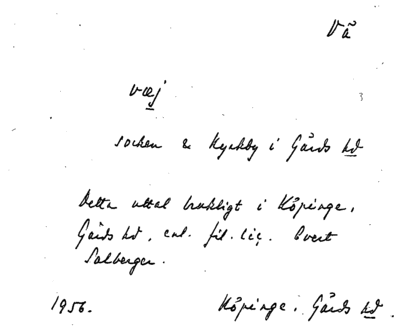 Vä
væj
socken & Kyrkby i Gärds hd
Detta uttal brukligt i Köpinge,
Gärds hd, enl. fil. lic. Evert
Salberger.
1956. Köpinge, Gärds hd.